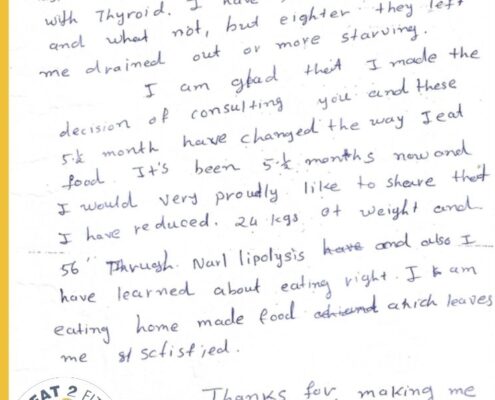 with Thyroid. I have
and what not, but eighter they left
me drained out or more starving.
I am glad that I made the
decision of consulting you and these
5.½ month have changed the way I eat
food. It's been 5.½ months now and
I would very proudly like to share that
I have reduced. 24 kgs of weight and
56" Through. Nurl lipolysis have and also I
have learned about eating right. I am
eating home made food which leaves
me satisfied.
EAT 2 FI
Thanks for making me